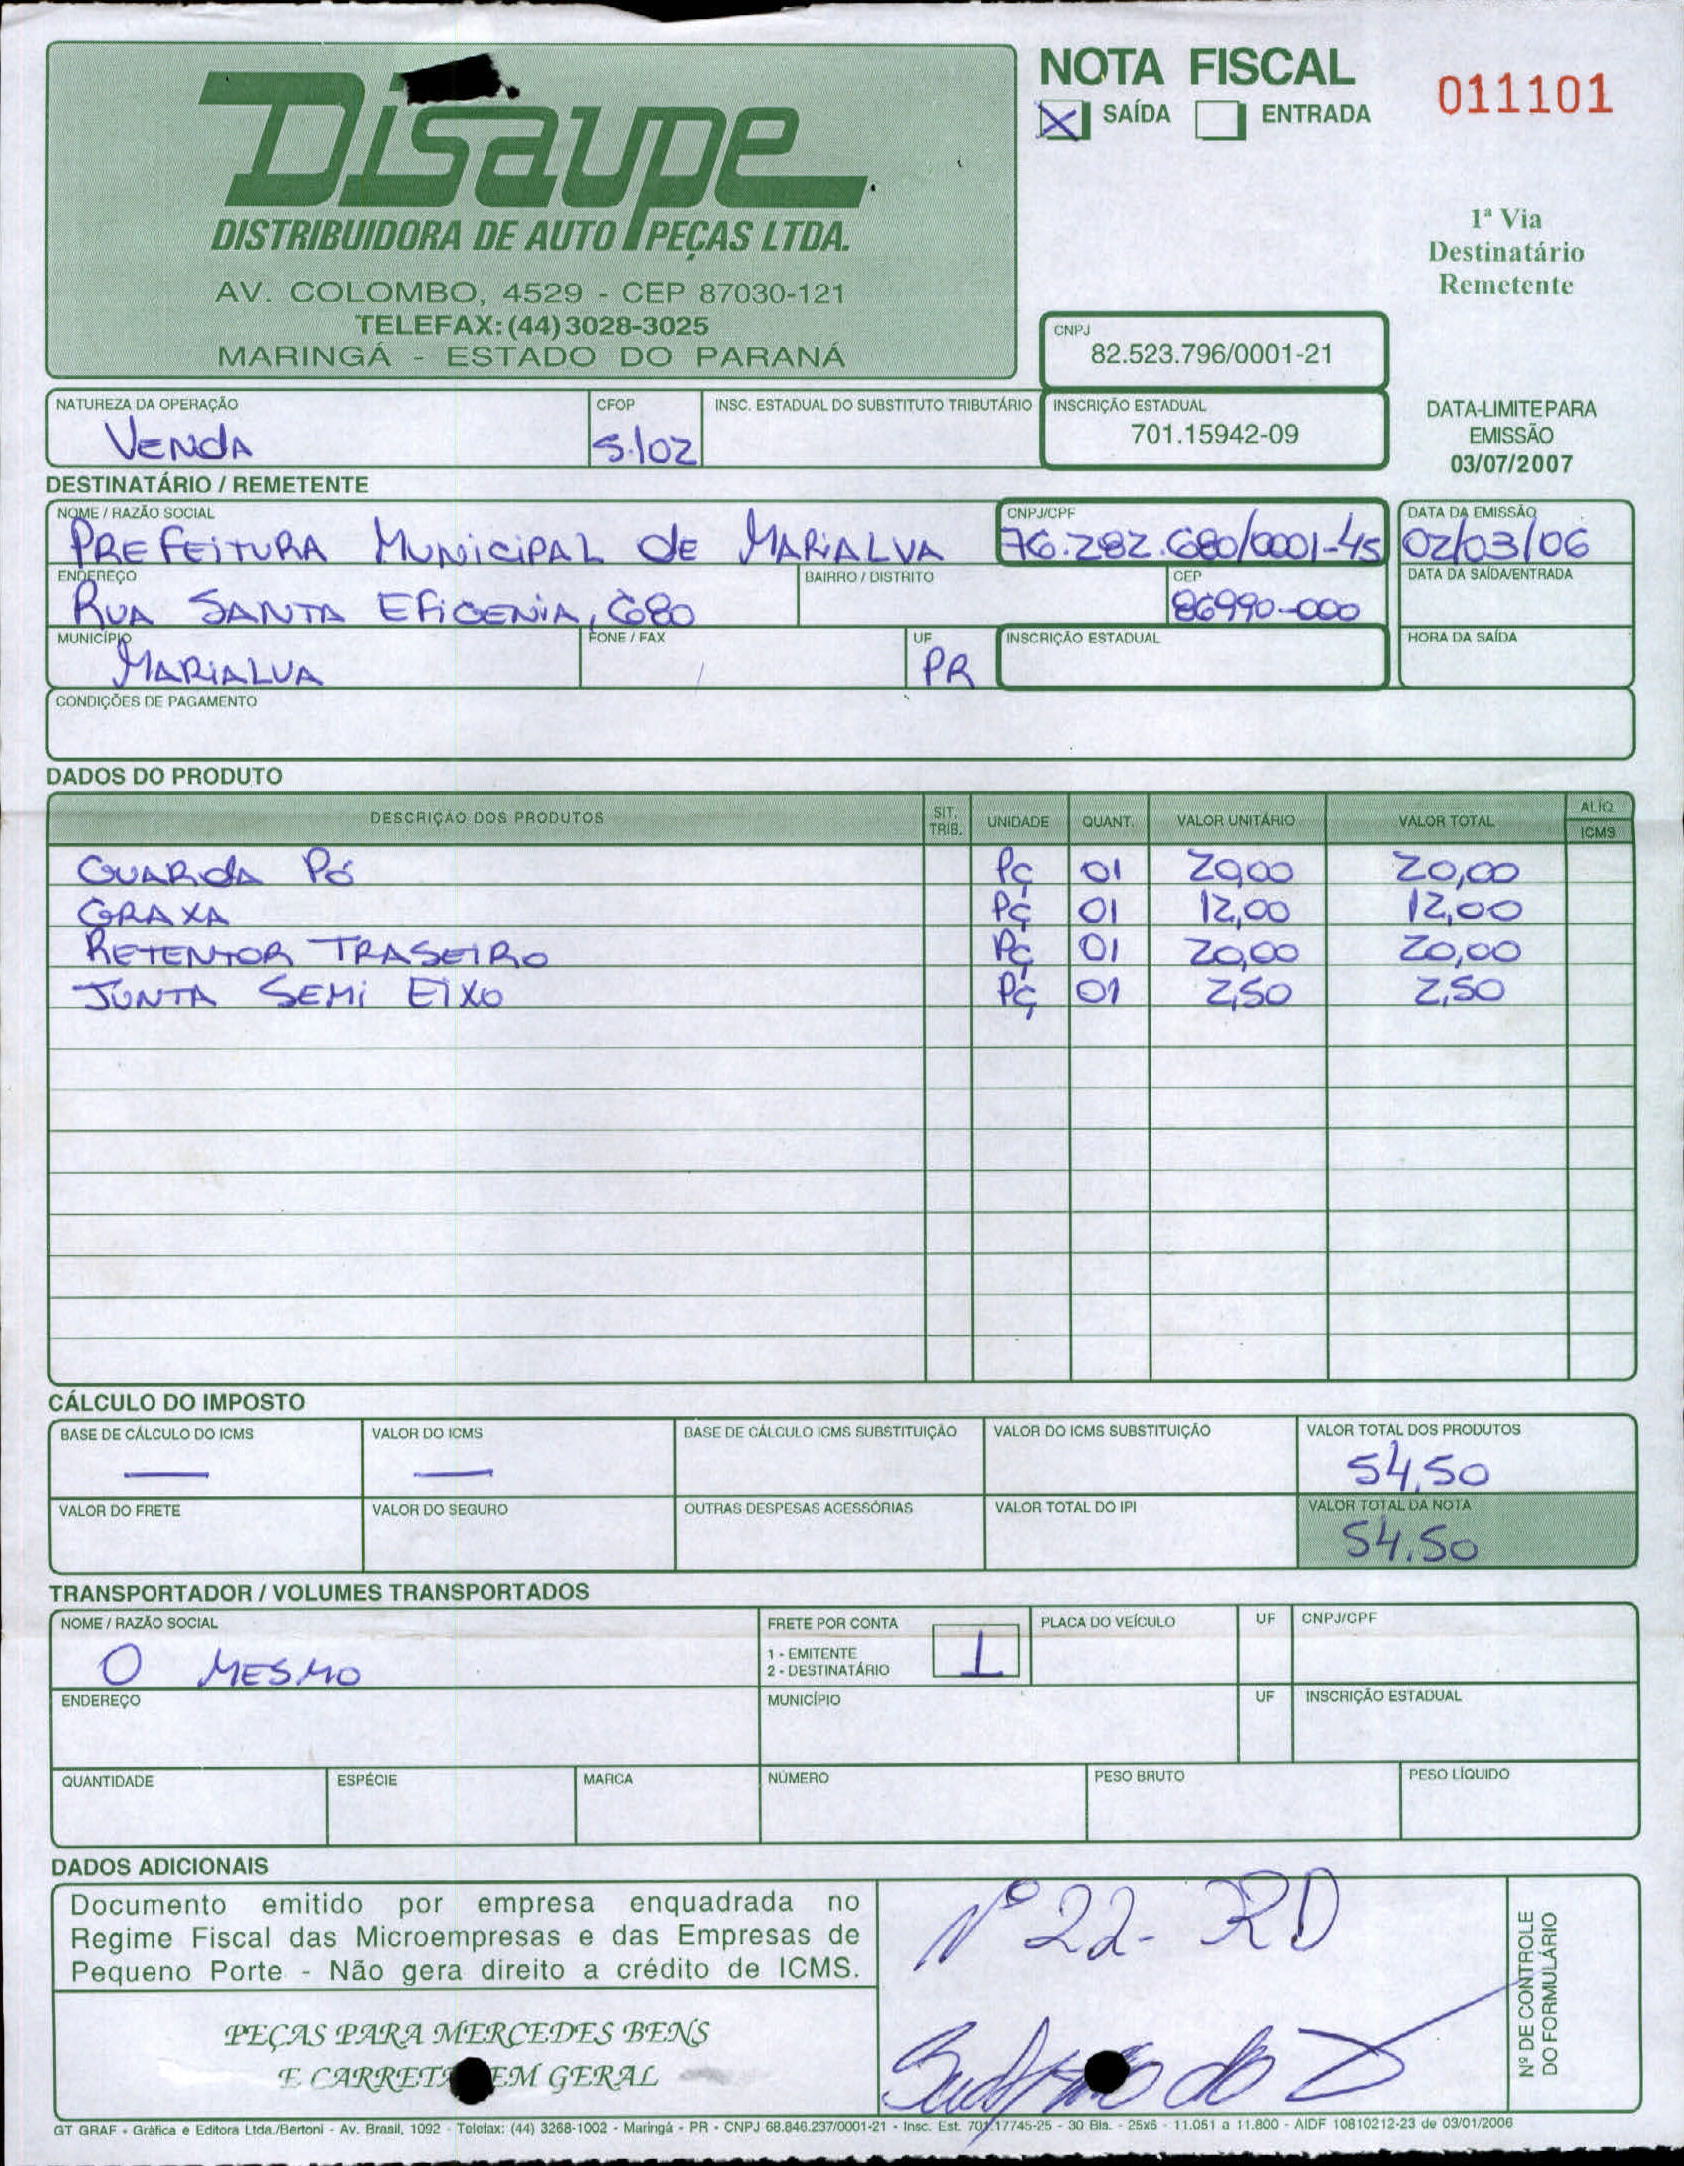 Disaupe
DISTRIBUIDORA DE AUTO PEÇAS LTDA.
AV. COLOMBO, 4529 - CEP 87030-121
TELEFAX: (44) 3028-3025
MARINGÁ - ESTADO DO PARANÁ
NOTA FISCAL
X SAÍDA ENTRADA
011101
1ª Via
Destinatário
Remetente
CNPJ
82.523.796/0001-21
NATUREZA DA OPERAÇÃO CFOP INSC. ESTADUAL DO SUBSTITUTO TRIBUTÁRIO INSCRIÇÃO ESTADUAL
VENDA 5.102 701.15942-09
DATA-LIMITE PARA
EMISSÃO
03/07/2007
DESTINATÁRIO / REMETENTE
NOME / RAZÃO SOCIAL CNPJ/CPF DATA DA EMISSÃO
PREFEITURA MUNICIPAL DE MARIALVA 76.282.680/0001-45 02/03/06
ENDEREÇO BAIRRO / DISTRITO CEP DATA DA SAÍDA/ENTRADA
RUA SANTA EFIGENIA, 680 86990-000
MUNICÍPIO FONE / FAX UF INSCRIÇÃO ESTADUAL HORA DA SAÍDA
MARIALVA PR
CONDIÇÕES DE PAGAMENTO
DADOS DO PRODUTO
DESCRIÇÃO DOS PRODUTOS SIT. TRIB. UNIDADE QUANT. VALOR UNITÁRIO VALOR TOTAL ALIQ. ICMS
GUARDA PÓ PÇ 01 20,00 20,00
GRAXA PÇ 01 12,00 12,00
RETENTOR TRASEIRO PÇ 01 20,00 20,00
JUNTA SEMI EIXO PÇ 01 2,50 2,50
CÁLCULO DO IMPOSTO
BASE DE CÁLCULO DO ICMS VALOR DO ICMS BASE DE CÁLCULO ICMS SUBSTITUIÇÃO VALOR DO ICMS SUBSTITUIÇÃO VALOR TOTAL DOS PRODUTOS
— — 54,50
VALOR DO FRETE VALOR DO SEGURO OUTRAS DESPESAS ACESSÓRIAS VALOR TOTAL DO IPI VALOR TOTAL DA NOTA
54.50
TRANSPORTADOR / VOLUMES TRANSPORTADOS
NOME / RAZÃO SOCIAL FRETE POR CONTA PLACA DO VEÍCULO UF CNPJ/CPF
O MESMO 1 - EMITENTE 1
2 - DESTINATÁRIO
ENDEREÇO MUNICÍPIO UF INSCRIÇÃO ESTADUAL
QUANTIDADE ESPÉCIE MARCA NÚMERO PESO BRUTO PESO LÍQUIDO
DADOS ADICIONAIS
Documento emitido por empresa enquadrada no
Regime Fiscal das Microempresas e das Empresas de
Pequeno Porte - Não gera direito a crédito de ICMS.
PEÇAS PARA MERCEDES BENS
E CARRETA EM GERAL
Nº 22 - RD
Nº DE CONTROLE
DO FORMULÁRIO
GT GRAF - Gráfica e Editora Ltda./Bertoni - Av. Brasil, 1092 - Telefax: (44) 3268-1002 - Maringá - PR - CNPJ 68.846.237/0001-21 - Insc. Est. 701.17745-25 - 30 Bls. - 25x6 - 11.051 a 11.800 - AIDF 10810212-23 de 03/01/2006